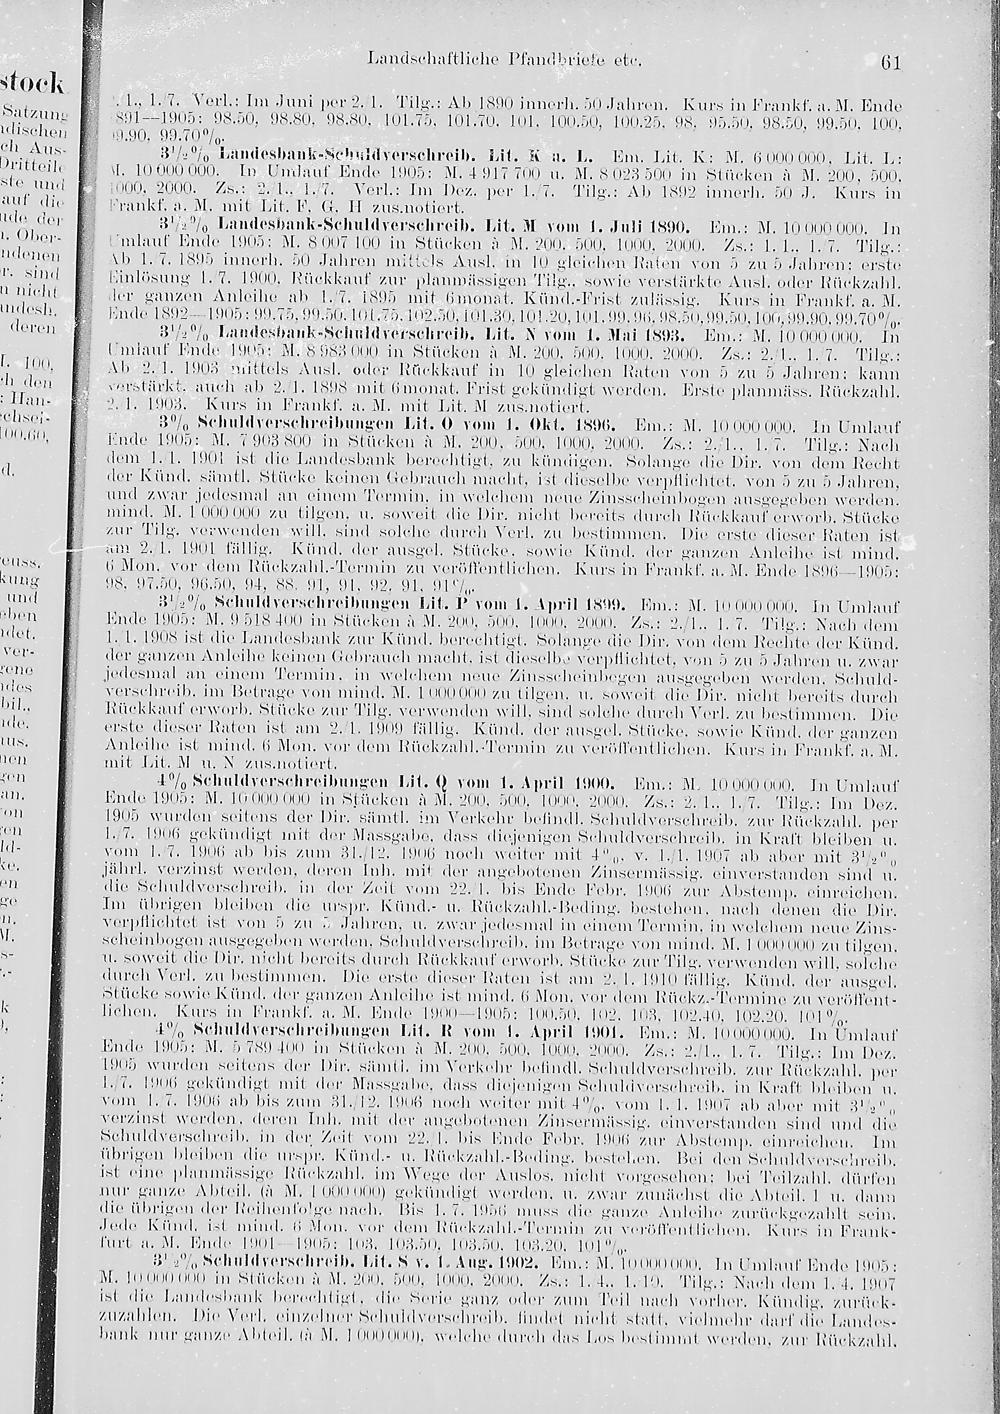 Landschaftliche Pfandbriefe etc. 61
1., 1./7. Verl.: Im Juni per 2. 1. Tilg.: Ab 1890 innerh. 50 Jahren. Kurs in Frankf. a. M. Ende
891—1905: 98.50, 98.80, 98.80, 101.75, 101.70, 101, 100.50, 100.25, 98, 95.50, 98.50, 99.50, 100,
99.90, 99.70%.
3½% Landesbank-Schuldverschreib. Lit. K u. L. Em. Lit. K: M. 6 000 000, Lit. L:
M. 10 000 000. In Umlauf Ende 1905: M. 4 917 700 u. M. 8 023 500 in Stücken à M. 200, 500,
1000, 2000. Zs.: 2./1., 1./7. Verl.: Im Dez. per 1./7. Tilg.: Ab 1892 innerh. 50 J. Kurs in
Frankf. a. M. mit Lit. F, G, H zus.notiert.
3½% Landesbank-Schuldverschreib. Lit. M vom 1. Juli 1890. Em.: M. 10 000 000. In
Umlauf Ende 1905: M. 8 007 100 in Stücken à M. 200, 500, 1000, 2000. Zs.: 1. 1., 1. 7. Tilg.:
Ab 1. 7. 1895 innerh. 50 Jahren mittels Ausl. in 10 gleichen Raten von 5 zu 5 Jahren; erste
Einlösung 1. 7. 1900, Rückkauf zur planmässigen Tilg., sowie verstärkte Ausl. oder Rückzahl.
der ganzen Anleihe ab 1./7. 1895 mit 6monat. Künd.-Frist zulässig. Kurs in Frankf. a. M.
Ende 1892—1905: 99.75, 99.50, 101.75, 102.50, 101.30, 101.20, 101, 99.96, 98.50, 99.50, 100, 99.90, 99.70%.
3½% Landesbank-Schuldverschreib. Lit. N vom 1. Mai 1893. Em.: M. 10 000 000. In
Umlauf Ende 1905: M. 8 983 000 in Stücken à M. 200, 500, 1000, 2000. Zs.: 2./1., 1. 7. Tilg.:
Ab 2./1. 1903 mittels Ausl. oder Rückkauf in 10 gleichen Raten von 5 zu 5 Jahren; kann
verstärkt, auch ab 2./1. 1898 mit 6monat. Frist gekündigt werden. Erste planmäss. Rückzahl.
2./1. 1903. Kurs in Frankf. a. M. mit Lit. M zus.notiert.
3% Schuldverschreibungen Lit. O vom 1. Okt. 1896. Em.: M. 10 000 000. In Umlauf
Ende 1905: M. 7 903 800 in Stücken à M. 200, 500, 1000, 2000. Zs.: 2./1., 1. 7. Tilg.: Nach
dem 1./1. 1901 ist die Landesbank berechtigt, zu kündigen. Solange die Dir. von dem Recht
der Künd. sämtl. Stücke keinen Gebrauch macht, ist dieselbe verpflichtet, von 5 zu 5 Jahren,
und zwar jedesmal an einem Termin, in welchem neue Zinsscheinbogen ausgegeben werden,
mind. M. 1 000 000 zu tilgen, u. soweit die Dir. nicht bereits durch Rückkauf erworb. Stücke
zur Tilg. verwenden will, sind solche durch Verl. zu bestimmen. Die erste dieser Raten ist
am 2./1. 1901 fällig. Künd. der ausgel. Stücke, sowie Künd. der ganzen Anleihe ist mind.
6 Mon. vor dem Rückzahl.-Termin zu veröffentlichen. Kurs in Frankf. a. M. Ende 1896—1905:
98, 97.50, 96.50, 94, 88, 91, 91, 92, 91, 91%.
3½% Schuldverschreibungen Lit. P vom 1. April 1899. Em.: M. 10 000 000. In Umlauf
Ende 1905: M. 9 518 400 in Stücken à M. 200, 500, 1000, 2000. Zs.: 2./1., 1. 7. Tilg.: Nach dem
1. 1. 1908 ist die Landesbank zur Künd. berechtigt. Solange die Dir. von dem Rechte der Künd.
der ganzen Anleihe keinen Gebrauch macht, ist dieselbe verpflichtet, von 5 zu 5 Jahren u. zwar
jedesmal an einem Termin, in welchem neue Zinsscheinbogen ausgegeben werden, Schuld-
verschreib. im Betrage von mind. M. 1 000 000 zu tilgen, u. soweit die Dir. nicht bereits durch
Rückkauf erworb. Stücke zur Tilg. verwenden will, sind solche durch Verl. zu bestimmen. Die
erste dieser Raten ist am 2./1. 1909 fällig. Künd. der ausgel. Stücke, sowie Künd. der ganzen
Anleihe ist mind. 6 Mon. vor dem Rückzahl.-Termin zu veröffentlichen. Kurs in Frankf. a. M.
mit Lit. M u. N zus.notiert.
4% Schuldverschreibungen Lit. Q vom 1. April 1900. Em.: M. 10 000 000. In Umlauf
Ende 1905: M. 10 000 000 in Stücken à M. 200, 500, 1000, 2000. Zs.: 2. 1., 1./7. Tilg.: Im Dez.
1905 wurden seitens der Dir. sämtl. im Verkehr befindl. Schuldverschreib. zur Rückzahl. per
1./7. 1906 gekündigt mit der Massgabe, dass diejenigen Schuldverschreib. in Kraft bleiben u.
vom 1. 7. 1906 ab bis zum 31./12. 1906 noch weiter mit 4%, v. 1./1. 1907 ab aber mit 3½%
jährl. verzinst werden, deren Inh. mit der angebotenen Zinsermässig. einverstanden sind u.
die Schuldverschreib. in der Zeit vom 22./1. bis Ende Febr. 1906 zur Abstemp. einreichen.
Im übrigen bleiben die urspr. Künd.- u. Rückzahl.-Beding. bestehen, nach denen die Dir.
verpflichtet ist von 5 zu 5 Jahren, u. zwar jedesmal in einem Termin, in welchem neue Zins-
scheinbogen ausgegeben werden, Schuldverschreib. im Betrage von mind. M. 1 000 000 zu tilgen,
u. soweit die Dir. nicht bereits durch Rückkauf erworb. Stücke zur Tilg. verwenden will, solche
durch Verl. zu bestimmen. Die erste dieser Raten ist am 2./1. 1910 fällig. Künd. der ausgel.
Stücke sowie Künd. der ganzen Anleihe ist mind. 6 Mon. vor dem Rückz.-Termine zu veröffent-
lichen. Kurs in Frankf. a. M. Ende 1900—1905: 100.50, 102, 103, 102.40, 102.20, 101%.
4% Schuldverschreibungen Lit. R vom 1. April 1901. Em.: M. 10 000 000. In Umlauf
Ende 1905: M. 5 789 400 in Stücken à M. 200, 500, 1000, 2000. Zs.: 2./1., 1. 7. Tilg.: Im Dez.
1905 wurden seitens der Dir. sämtl. im Verkehr befindl. Schuldverschreib. zur Rückzahl. per
1./7. 1906 gekündigt mit der Massgabe, dass diejenigen Schuldverschreib. in Kraft bleiben u.
vom 1. 7. 1906 ab bis zum 31./12. 1906 noch weiter mit 4%, vom 1. 1. 1907 ab aber mit 3½%
verzinst werden, deren Inh. mit der angebotenen Zinsermässig. einverstanden sind und die
Schuldverschreib. in der Zeit vom 22./1. bis Ende Febr. 1906 zur Abstemp. einreichen. Im
übrigen bleiben die urspr. Künd.- u. Rückzahl.-Beding. bestehen. Bei den Schuldverschreib.
ist eine planmässige Rückzahl. im Wege der Auslos. nicht vorgesehen; bei Teilzahl. dürfen
nur ganze Abteil. (à M. 1 000 000) gekündigt werden, u. zwar zunächst die Abteil. 1 u. dann
die übrigen der Reihenfolge nach. Bis 1./7. 1956 muss die ganze Anleihe zurückgezahlt sein.
Jede Künd. ist mind. 6 Mon. vor dem Rückzahl.-Termin zu veröffentlichen. Kurs in Frank-
furt a. M. Ende 1901—1905: 103, 103.50, 103.50, 103.20, 101%.
3½% Schuldverschreib. Lit. S v. 1. Aug. 1902. Em.: M. 10 000 000. In Umlauf Ende 1905:
M. 10 000 000 in Stücken à M. 200, 500, 1000, 2000. Zs.: 1. 4., 1. 10. Tilg.: Nach dem 1. 4. 1907
ist die Landesbank berechtigt, die Serie ganz oder zum Teil nach vorher. Kündig. zurück-
zuzahlen. Die Verl. einzelner Schuldverschreib. findet nicht statt, vielmehr darf die Landes-
bank nur ganze Abteil. (à M. 1 000 000), welche durch das Los bestimmt werden, zur Rückzahl.